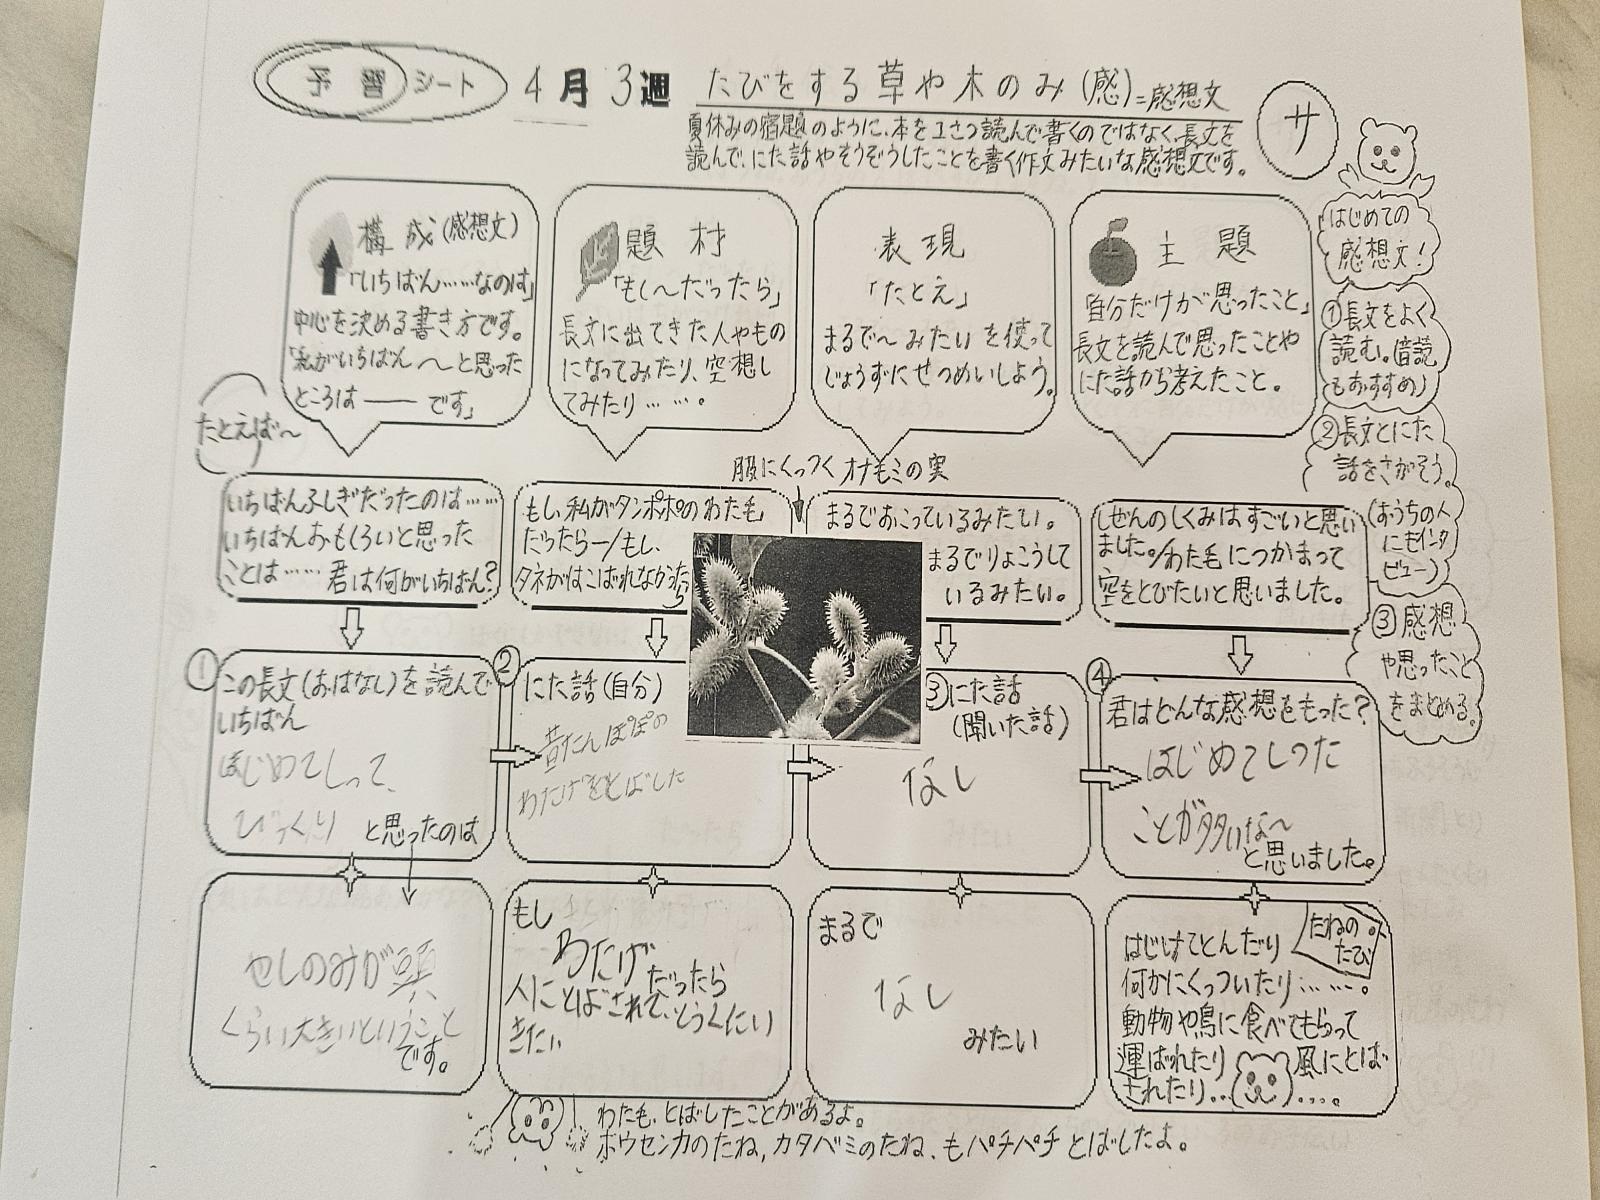 予習シート 4月3週 たびをする草や木のみ(感)=感想文
サ
夏休みの宿題のように、本を1さつ読んで書くのではなく、長文を
読んで、にた話やそうぞうしたことを書く作文みたいな感想文です。
構成(感想文)
「いちばん……なのは」
中心を決める書き方です。
「私がいちばん〜と思った
ところは―― です」
題材
「もし〜だったら」
長文に出てきた人やもの
になってみたり、空想し
てみたり……。
表現
「たとえ」
まるで〜みたいを使って
じょうずにせつめいしよう。
主題
「自分だけが思ったこと」
長文を読んで思ったことや
にた話から考えたこと。
はじめての
感想文!
①長文をよく
読む。(音読
もおすすめ)
②長文とにた
話をさがそう。
(おうちの人
にもインタ
ビュー)
③感想
や思ったこと
をまとめる。
たとえば〜
いちばんふしぎだったのは……
いちばんおもしろいと思った
ことは…… 君は何がいちばん?
もし、私がタンポポのわた毛
だったら―/もし、
タネがはこばれなかったら
服にくっつくオナモミの実
まるでおこっているみたい。
まるでりょこうして
いるみたい。
しぜんのしくみはすごいと思い
ました。/わた毛につかまって
空をとびたいと思いました。
①この長文(おはなし)を読んで
いちばん
はじめてしって、
びっくり と思ったのは
②にた話(自分)
昔たんぽぽの
わたげをとばした
③にた話
(聞いた話)
なし
④君はどんな感想をもった?
はじめてしった
ことが多いな〜
と思いました。
やしのみが頭
くらい大きいということ
です。
もし
わたげだったら
人にとばされて、とうくにい
きたい
まるで
なし
みたい
たねの
たび
はじけてとんだり
何かにくっついたり……。
動物や鳥に食べてもらって
運ばれたり 風にとば
されたり……。
わた毛、とばしたことがあるよ。
ホウセンカのたね、カタバミのたね、もパチパチとばしたよ。